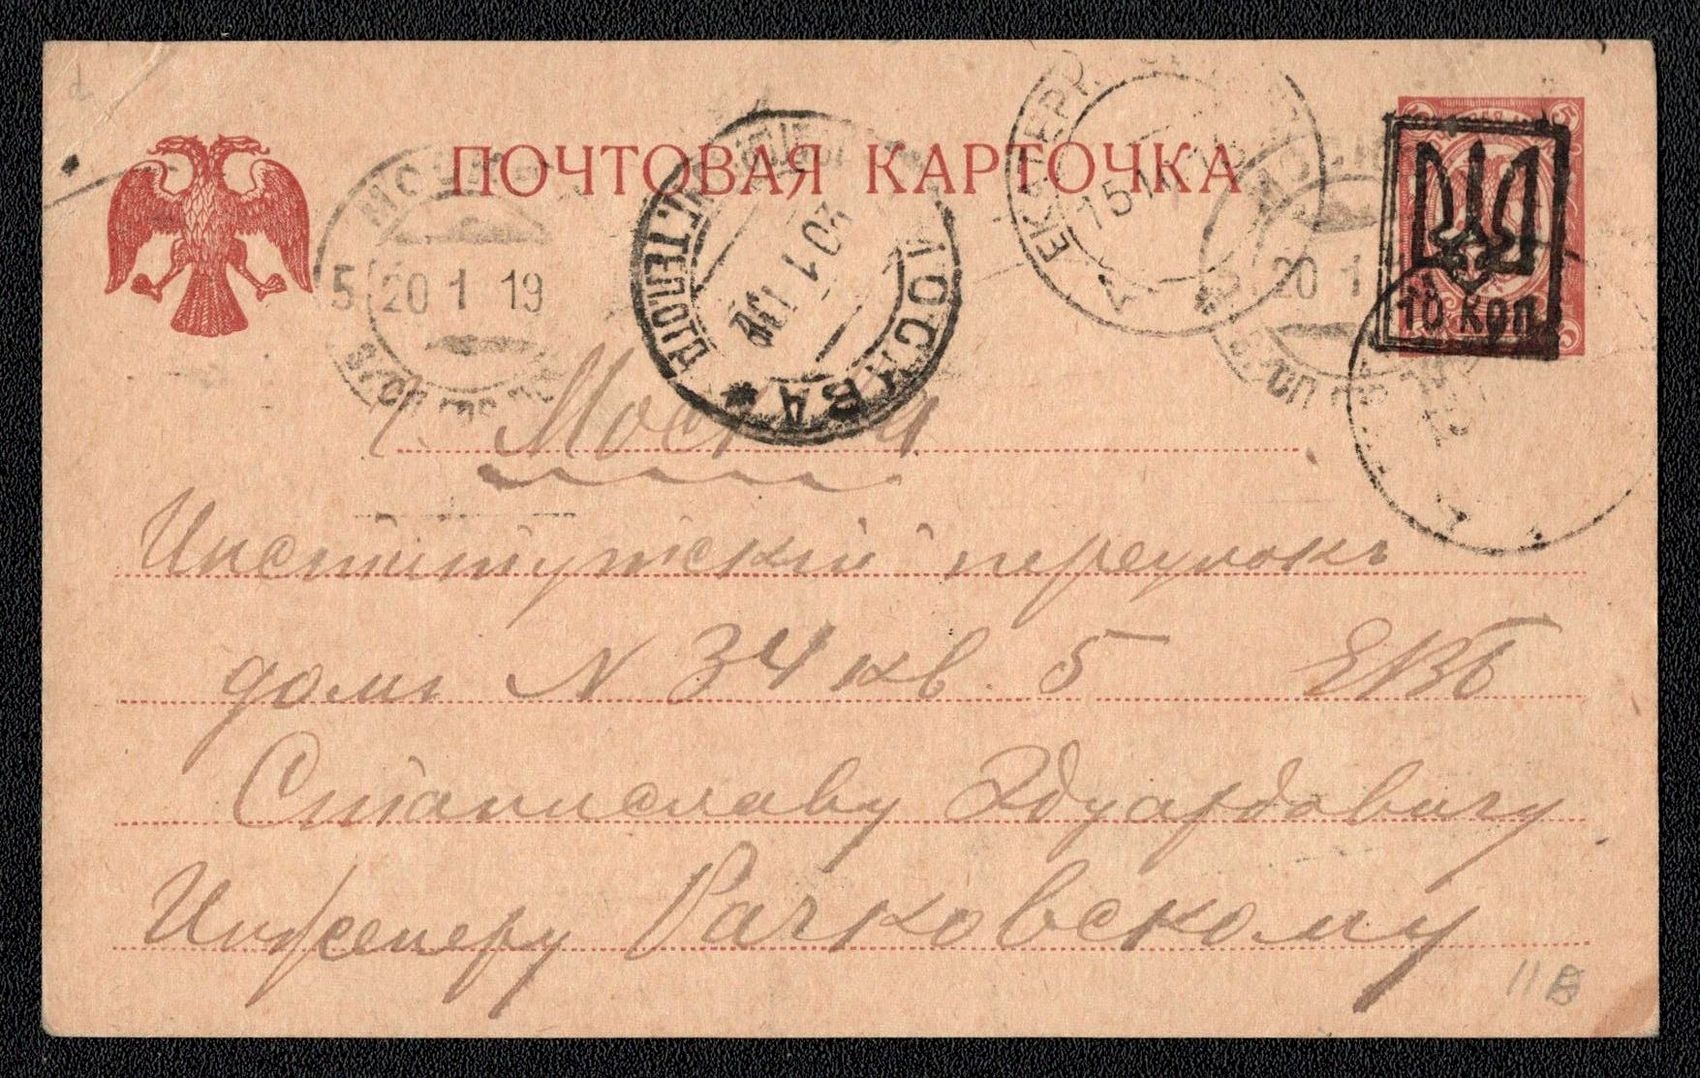 ПОЧТОВАЯ КАРТОЧКА
10 коп.
5 20 1 19
МОСКВА
20 1 19
20 1
Москва
Институтскій переулокъ
домъ N 34 кв. 5 ЕВБ
Станиславу Эдуардовичу
Инженеру Рачковскому
11